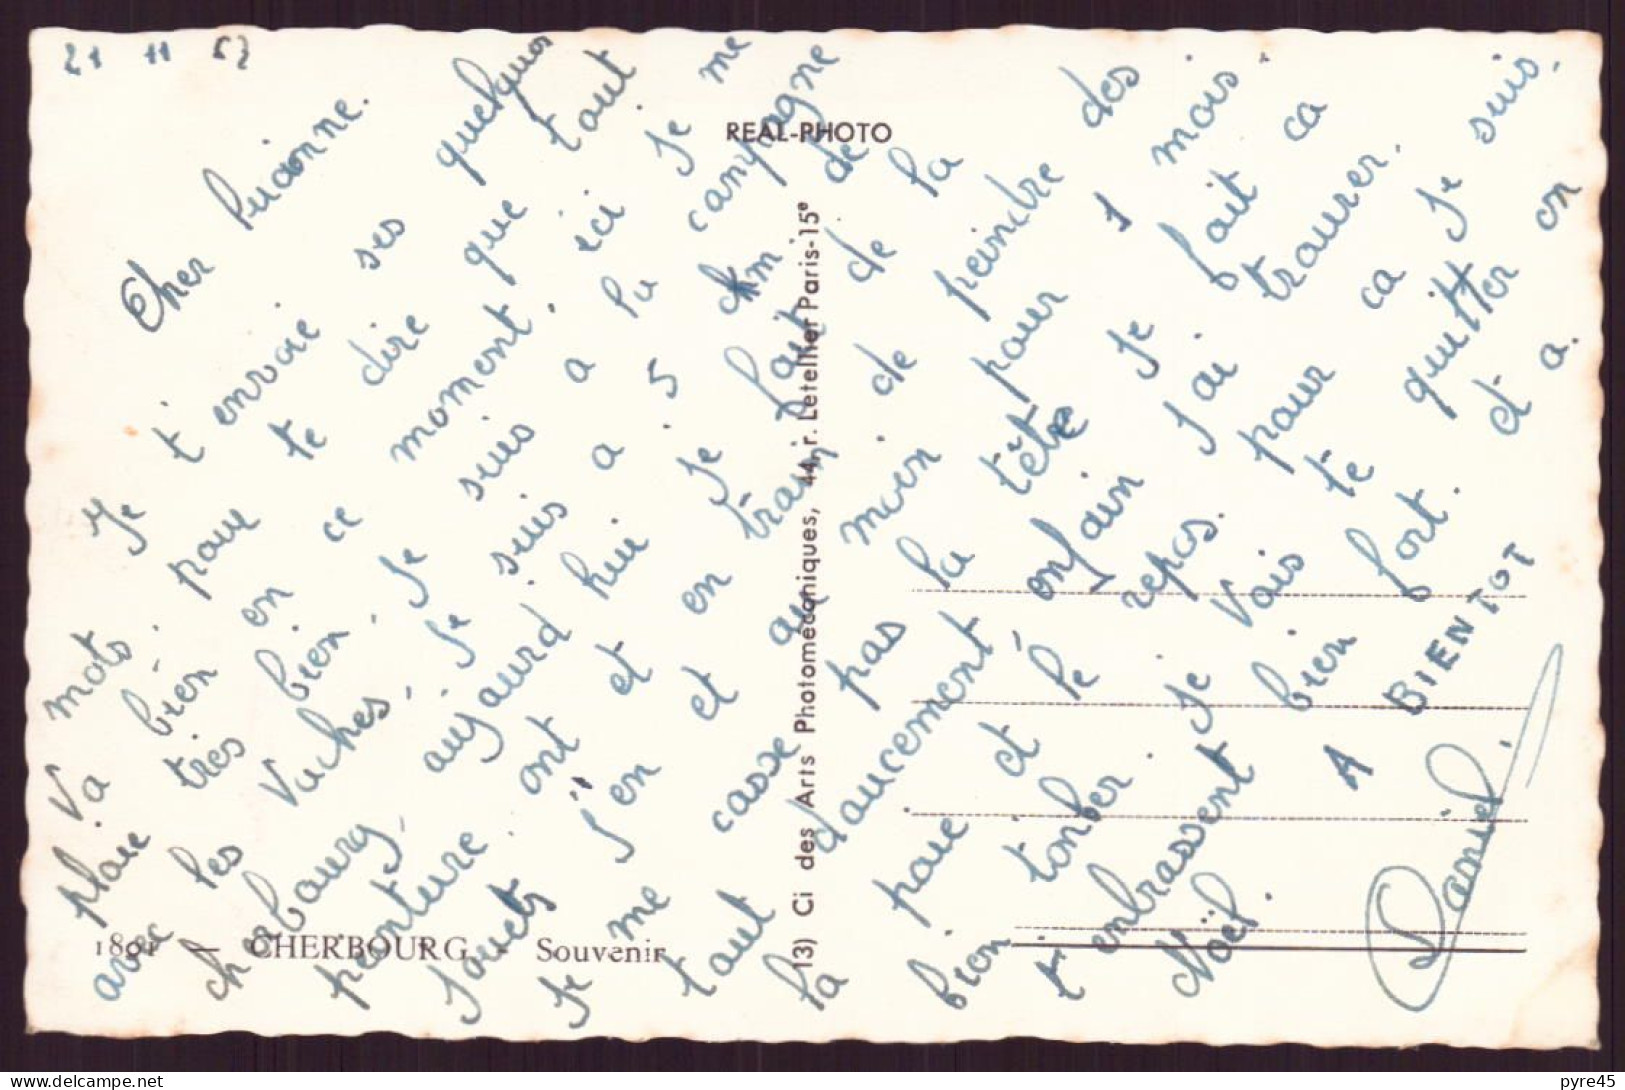 21 11 57
Cher Lucianne.
Je t'envoie ses quelques
mots, pour te dire que tout
va bien en ce moment, ici Je me
plaie très bien, Je suis a la campagne
avec les vaches, Je suis a 5 km de
cherbourg, aujourd hui Je fait de la
peinture ont et en train de peindre des
Jouets J'en et au moin pour 1 mois.
Je me casse pas la tête Je fait ca
tout doucement, enfain J'ai trouver.
la paie et le repos. pour ca Je suis.
bien tonber. Je Vais te quitter on
t'embrassent bien fort. et a.
Noël. A BIENTOT
Daniel.
REAL-PHOTO
13) Ci des Arts Photomécaniques, 44, r. Letellier Paris-15e
1891 — CHERBOURG — Souvenir
pyre45
delcampe.net